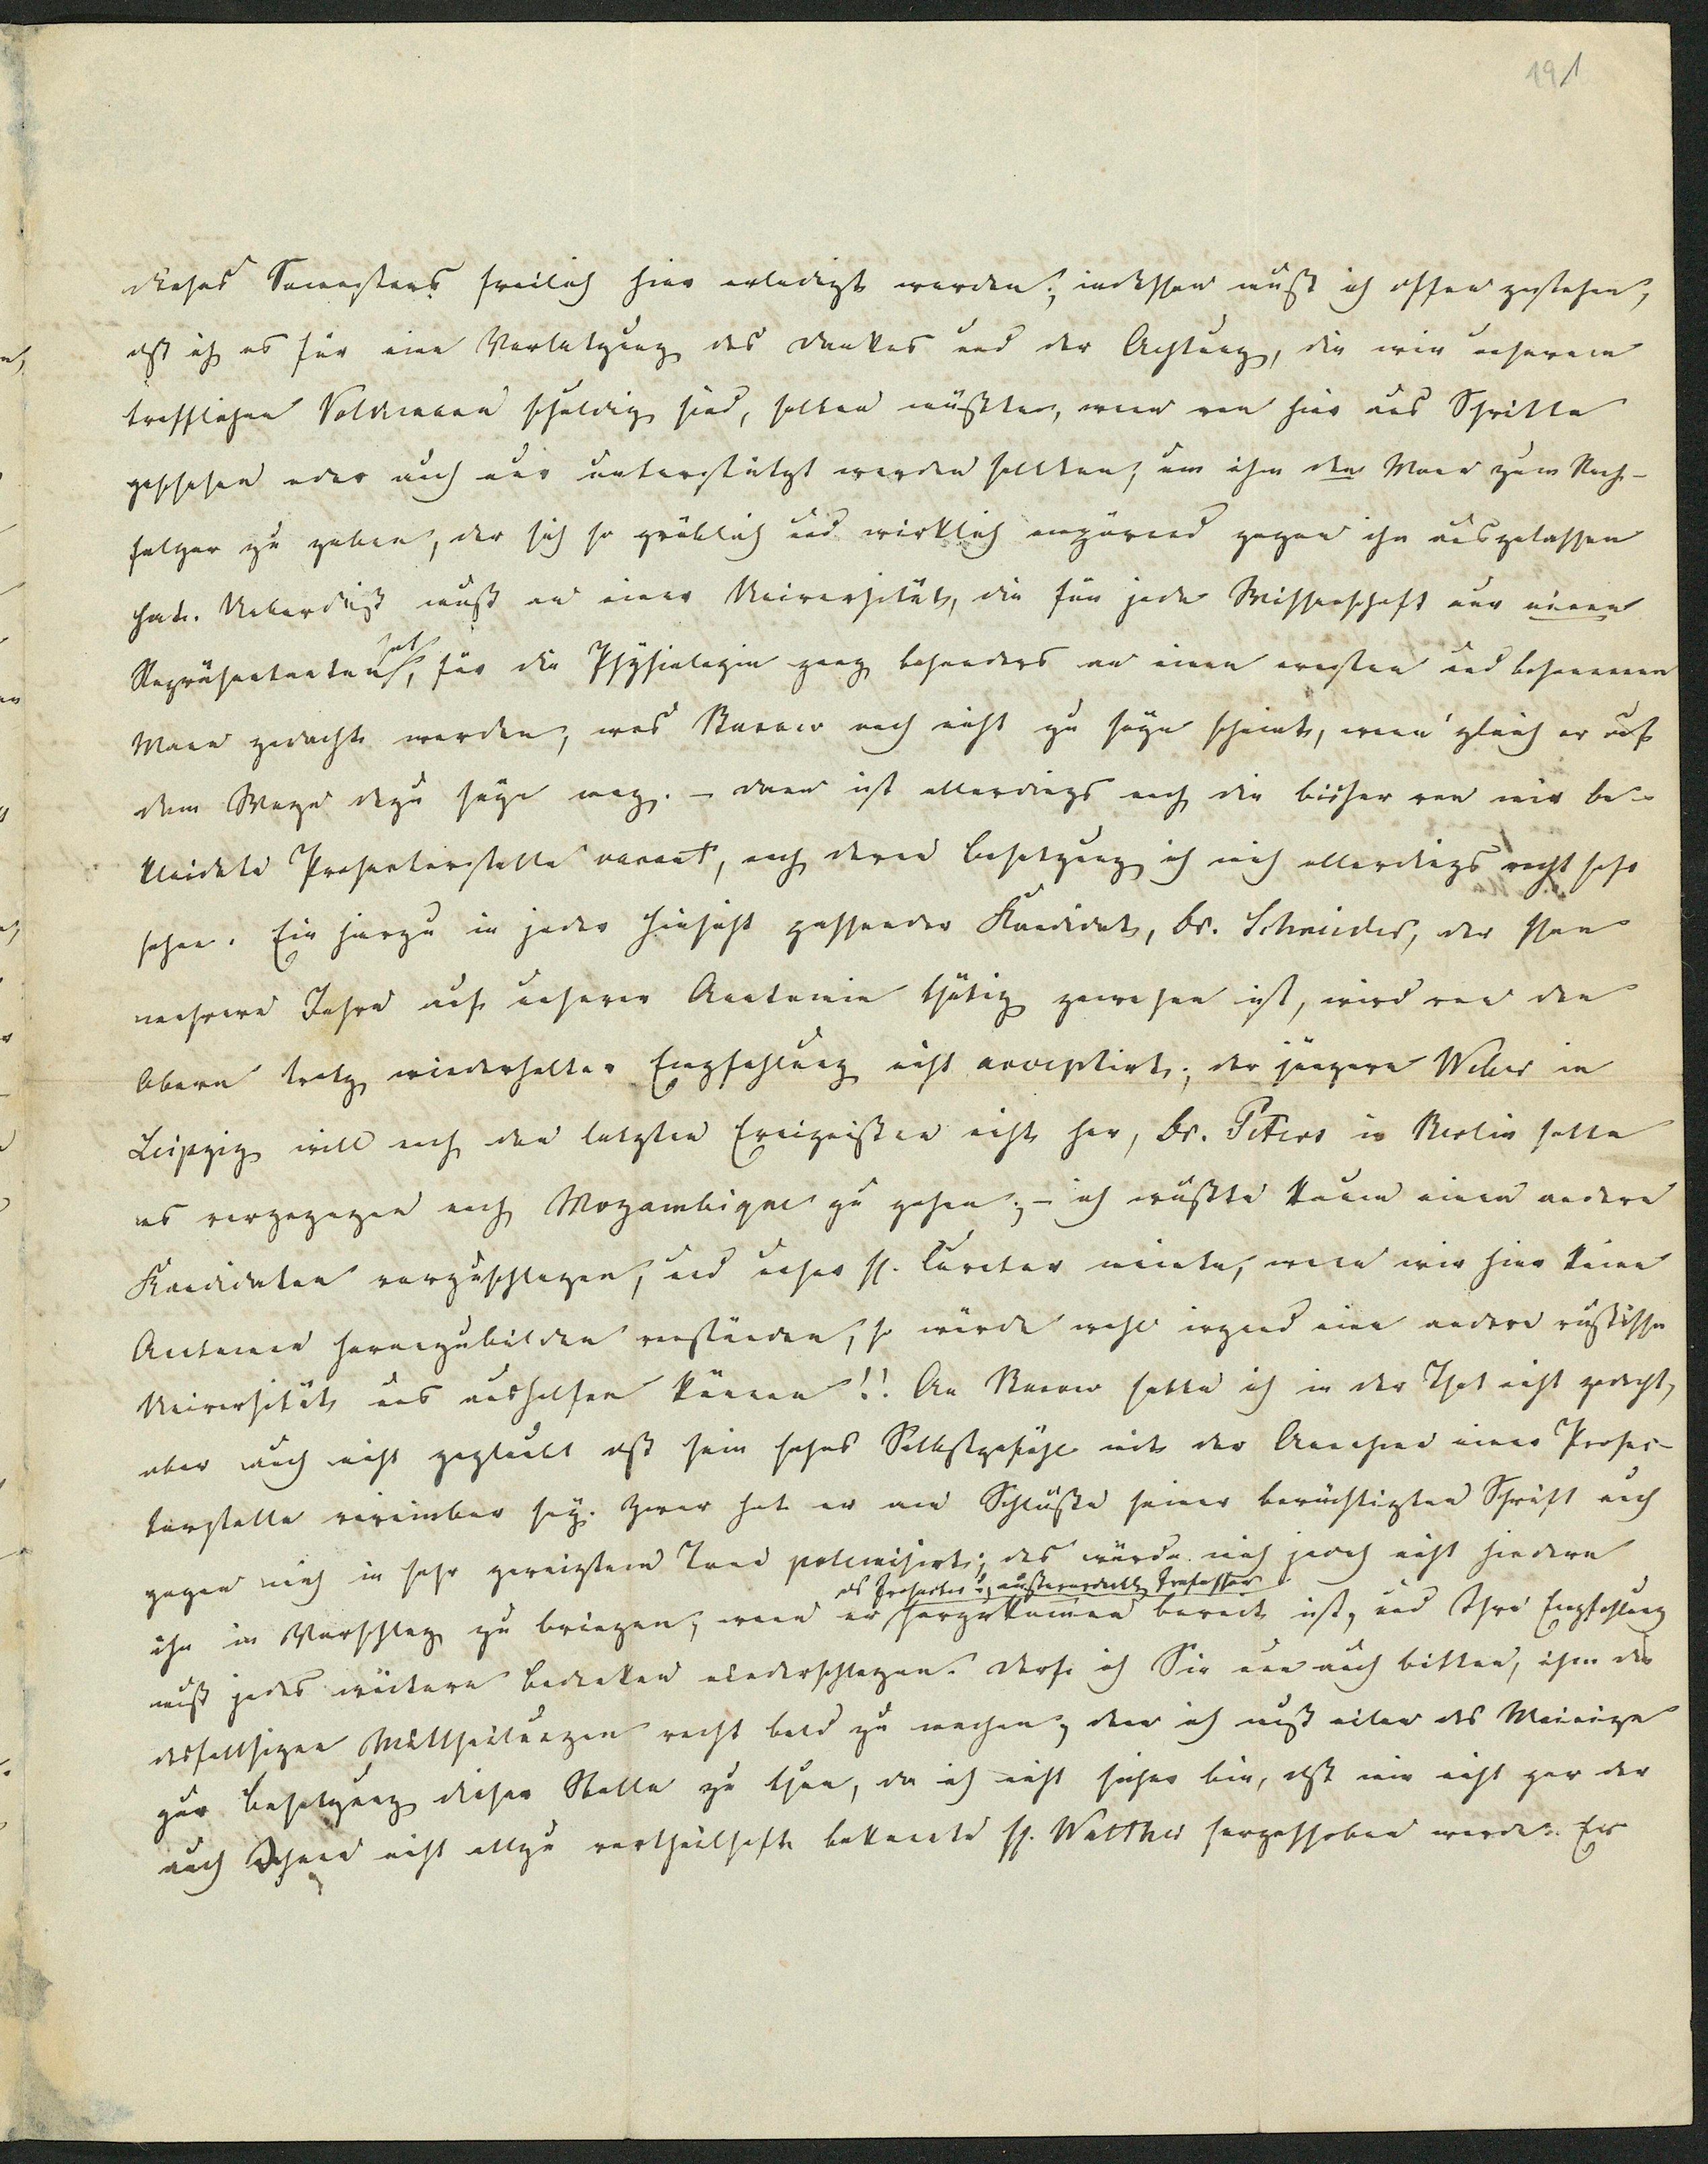 191
dieses Semesters freilich hier erledigt werden; indessen muß ich offen gestehen,
daß ich es für eine Verletzung des Dankes und der Achtung, die wir unserem
trefflichen Volkmann schuldig sind, halten müßte, wenn von hier aus Schritte
geschehen oder auch nur unterstützt werden sollten, um ihm den Mann zum Nach-
folger zu geben, der sich so gröblich und wirklich empörend gegen ihn ausgelassen
hat. Ueberdieß muß an einer Universität, die für jede Wissenschaft nur einen
Repräsentanten hat, für die Physiologie ganz besonders an einen ernsten und besonnenen
Mann gedacht werden, was Burow noch nicht zu seyn scheint, wenn gleich er auf
dem Wege dazu seyn mag. – Dann ist allerdings noch die bisher von mir be-
kleidete Prosectorstelle vacant, nach deren Besetzung ich mich allerdings recht sehr
sehne. Ein hierzu in jeder Hinsicht passender Kandidat, Dr. Schneider, der schon
mehrere Jahre auf unserer Anatomie thätig gewesen ist, wird von den
Obern trotz wiederholter Empfehlung nicht acceptirt; der jüngere Weber in
Leipzig will nach den letzten Ereignissen nicht her, Dr. Peters in Berlin hatte
es vorgezogen nach Mozambique zu gehen; – ich wüßte kaum einen andern
Kandidaten vorzuschlagen, und unser H. Curator meinte, wenn wir hier keine
Anatomen heranzubilden verständen, so würde wohl irgend eine andere russische
Universität uns aushelfen können!! An Burow hatte ich in der That nicht gedacht,
aber auch nicht geglaubt daß sein hohes Selbstgefühl mit der Annahme einer Prosec-
torstelle vereinbar sey. Zwar hat er am Schlusse seiner berüchtigten Schrift auch
gegen mich in sehr gereiztem Tone polemisirt; das würde mich jedoch nicht hindern
ihn in Vorschlag zu bringen, wenn er als Prosector u. außerordentl. Professor herzukommen bereit ist, und Ihre Empfehlung
muß jedes weitere Bedenken niederschlagen. Darf ich Sie nun auch bitten, ihm die
desfallsigen Mittheilungen recht bald zu machen, denn ich muß eilen das Meinige
zur Besetzung dieser Stelle zu thun, da ich nicht sicher bin, daß mir nicht gar der
auch Ihnen nicht allzu vortheilhaft bekannte H. Walther hergeschoben werde. Er